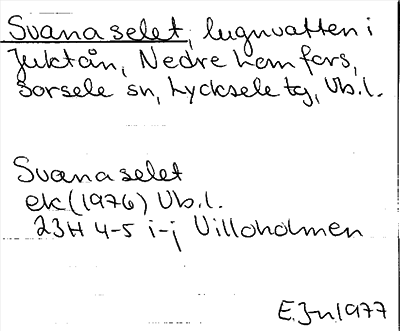 Svanaselet, lugnvatten i
Juktån, Nedre hemfors,
Sorsele sn, Lycksele tg, Vb.l.
Svanaselet
ek (1976) Vb.l.
23H 4-5 i-j Villoholmen
E.Jn.1977